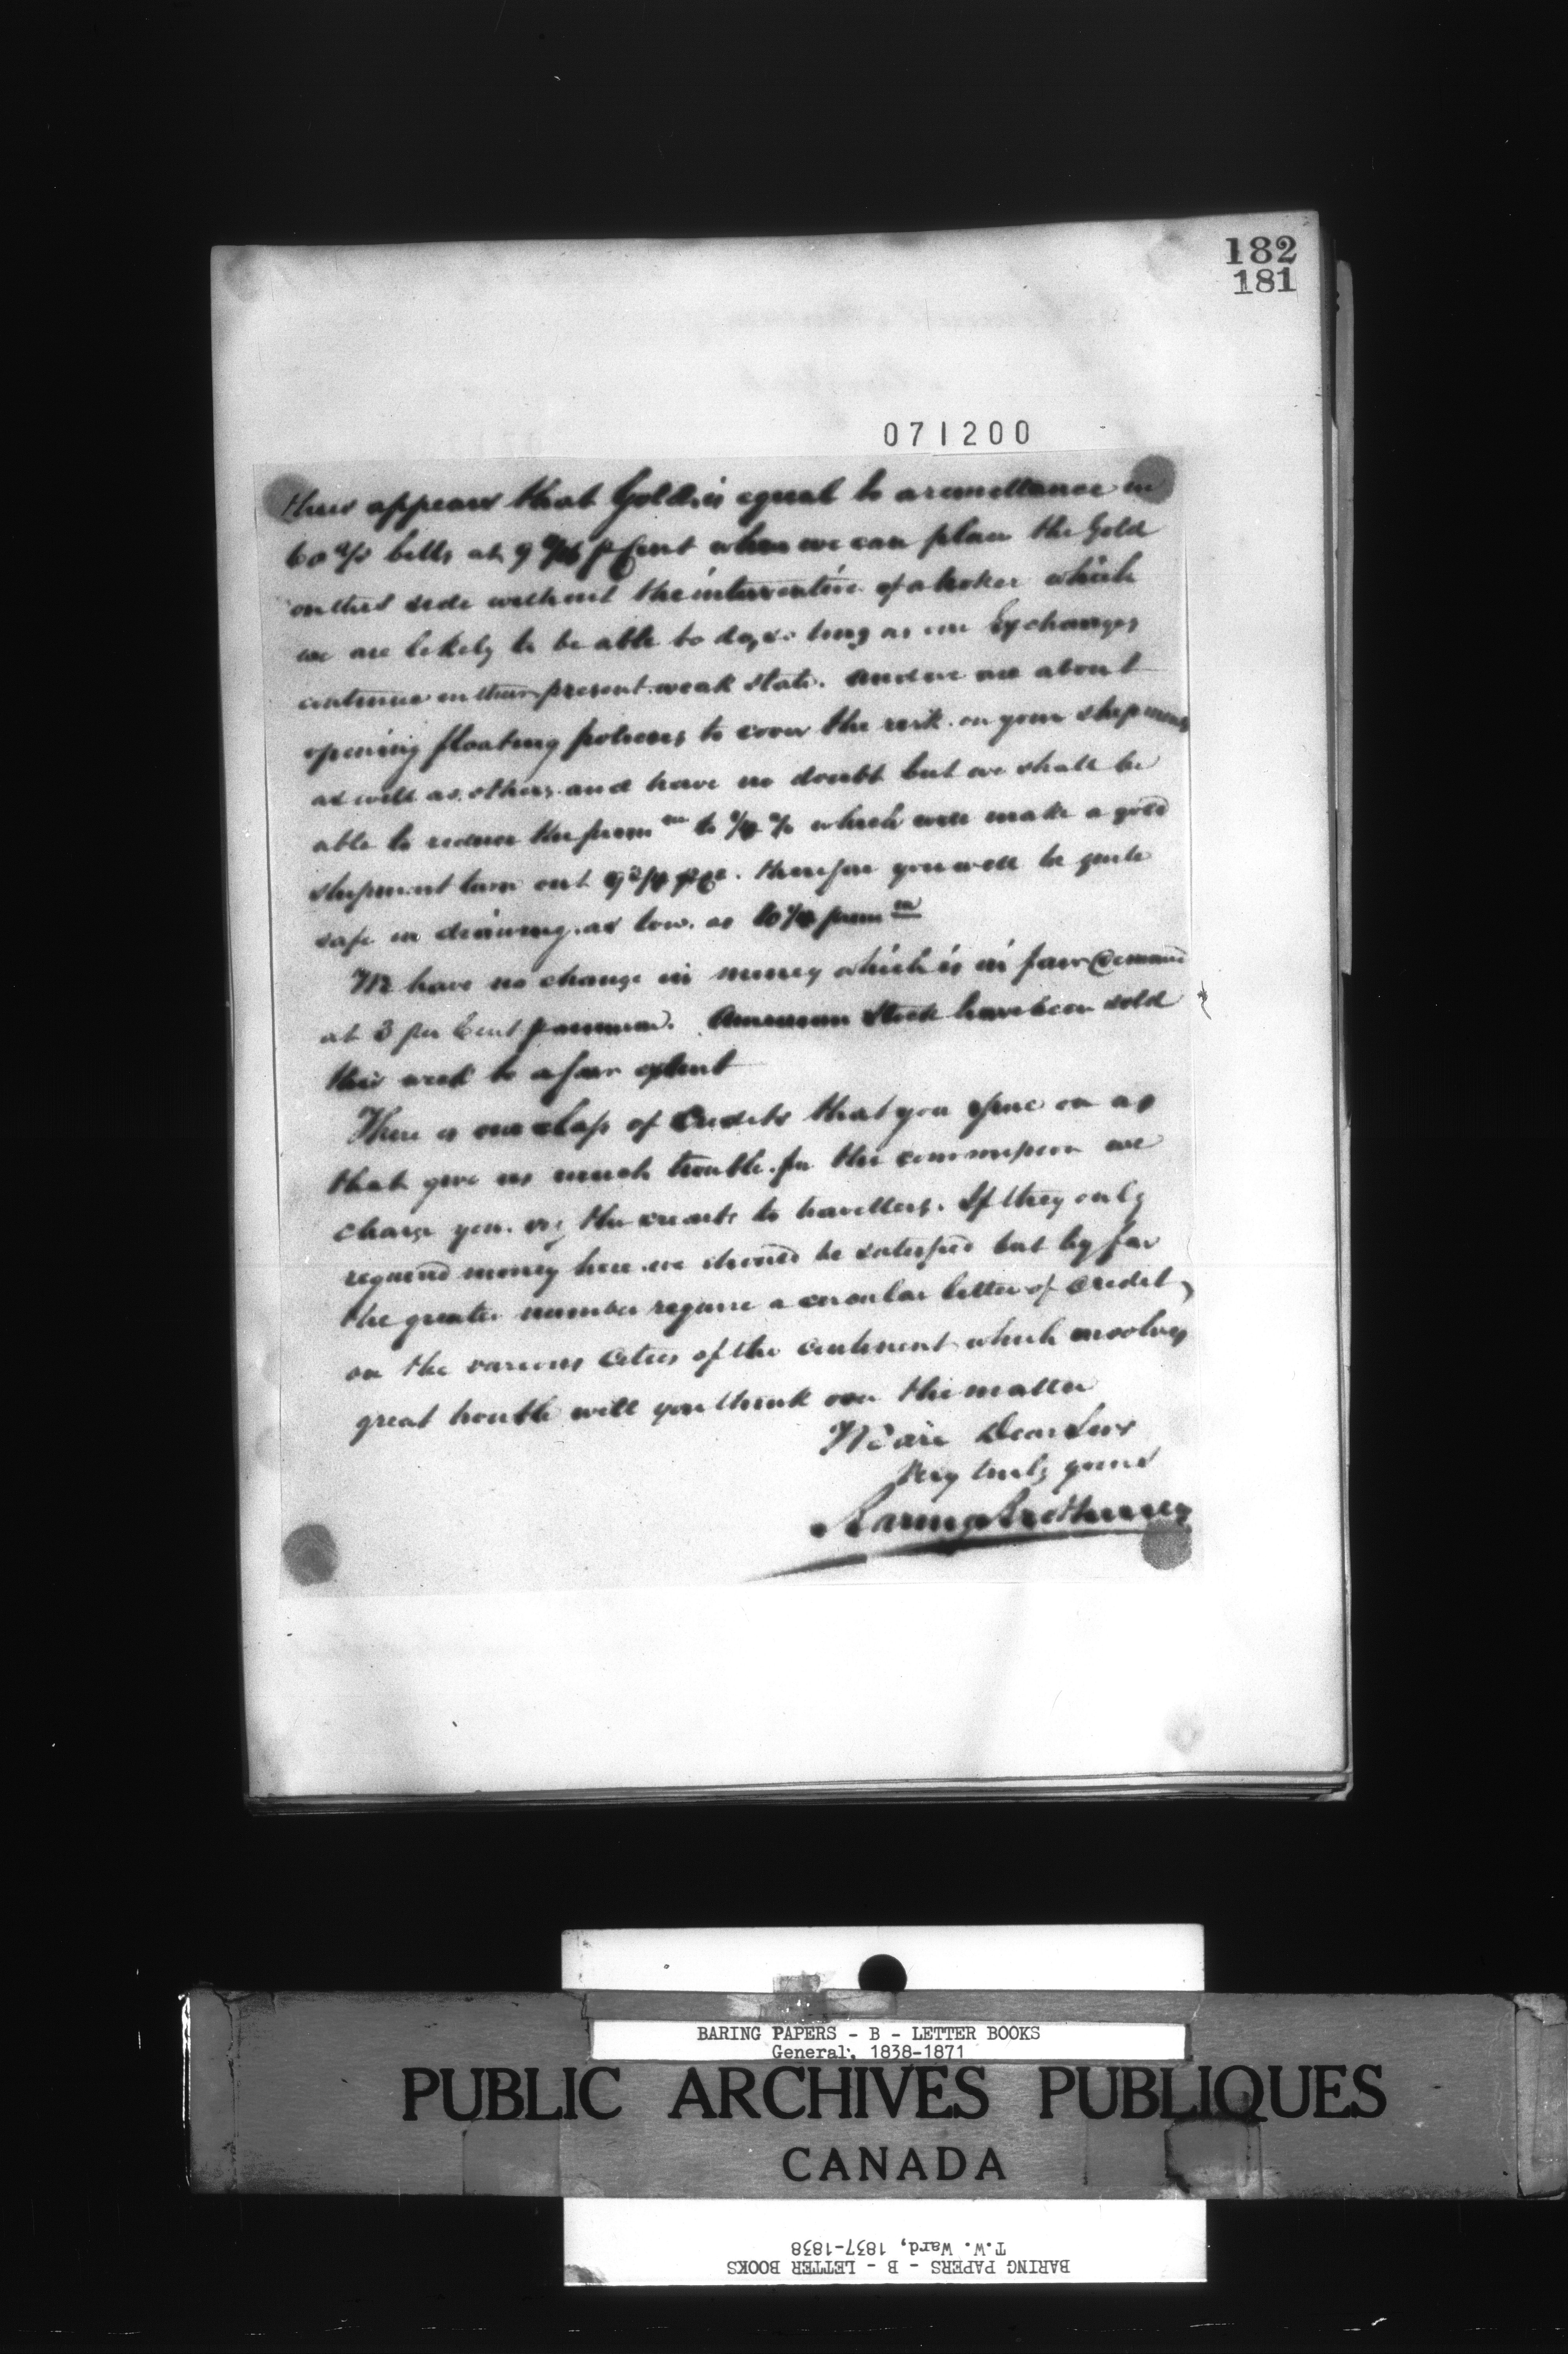 182
181
071200
thus appears that Gold is equal to a remittance in
60 d/s bills at 9 p Cent when we can place the Gold
on this side without the intervention of a broker which
we are likely to be able to do, so long as our Exchanges
continue in their present weak state. And we are about
opening floating policies to cover the risk on your shipments
as well as others and have no doubt but we shall be
able to reduce the prem m to % which will make a gold
shipment turn out therefore you will be quite
safe in drawing as low as prem m
We have no change in money which is in fair demand
at 3 per Cent p annum. American Stock have been sold
this week to a fair extent
There is one class of Credits that you give on us
that give us much trouble for the commission we
charge you. viz the credits to travellers. If they only
required money here we should be satisfied but by far
the greater number require a circular letter of Credit
on the various Cities of the Continent which involves
great trouble will you think over the matter
We are Dear Sirs
Very truly yours
Baring Brothers
BARING PAPERS - B - LETTER BOOKS
General, 1838-1871
PUBLIC ARCHIVES PUBLIQUES
CANADA
BARING PAPERS - B - LETTER BOOKS
T.W. Ward, 1837-1838